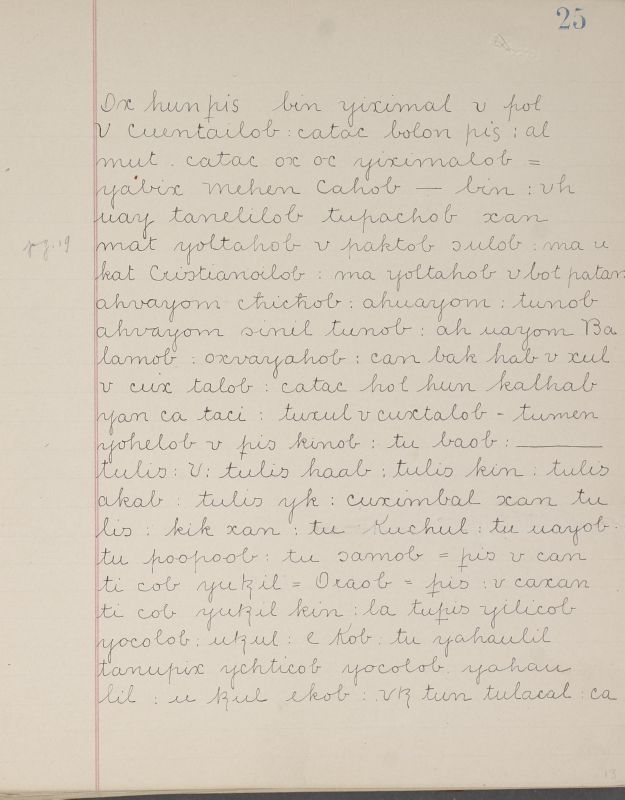 25
Ox hun pis bin yiximal v pol
V cuentailob : catac bolon pis : al
mut . catac ox oc yiximalob =
yabix mehen Cahob — bin : vh
uay tanelilob tupachob xan
mat yoltahob v paktob sulob : ma u
kat Cristianoilob : ma yoltahob v bot patan
ahvayom chichob : ahuayom : tunob
ahvayom sinil tunob : ah uayom Ba
lamob : oxvayahob : can bak hab v xul
v cux talob : catac hol hun kalhab
yan ca taci : tuxul v cuxtalob - tumen
yohelob v pis kinob : tu baob :
tulis : V : tulis haab : tulis kin : tulis
akab : tulis yk : cuximbal xan tu
lis : kik xan : tu Kuchul : tu uayob .
tu poopoob : tu samob = pis v can
ti cob yuꜩil = Oraob = pis : v caxan
ti cob yuꜩil kin : la tupis yilicob
yocolob : uꜩul : e Kob : tu yahaulil
tanupix ychticob yocolob . yahau
lil : u ꜩul ekob : vꜩ tun tulacal : ca
pg. 19
13